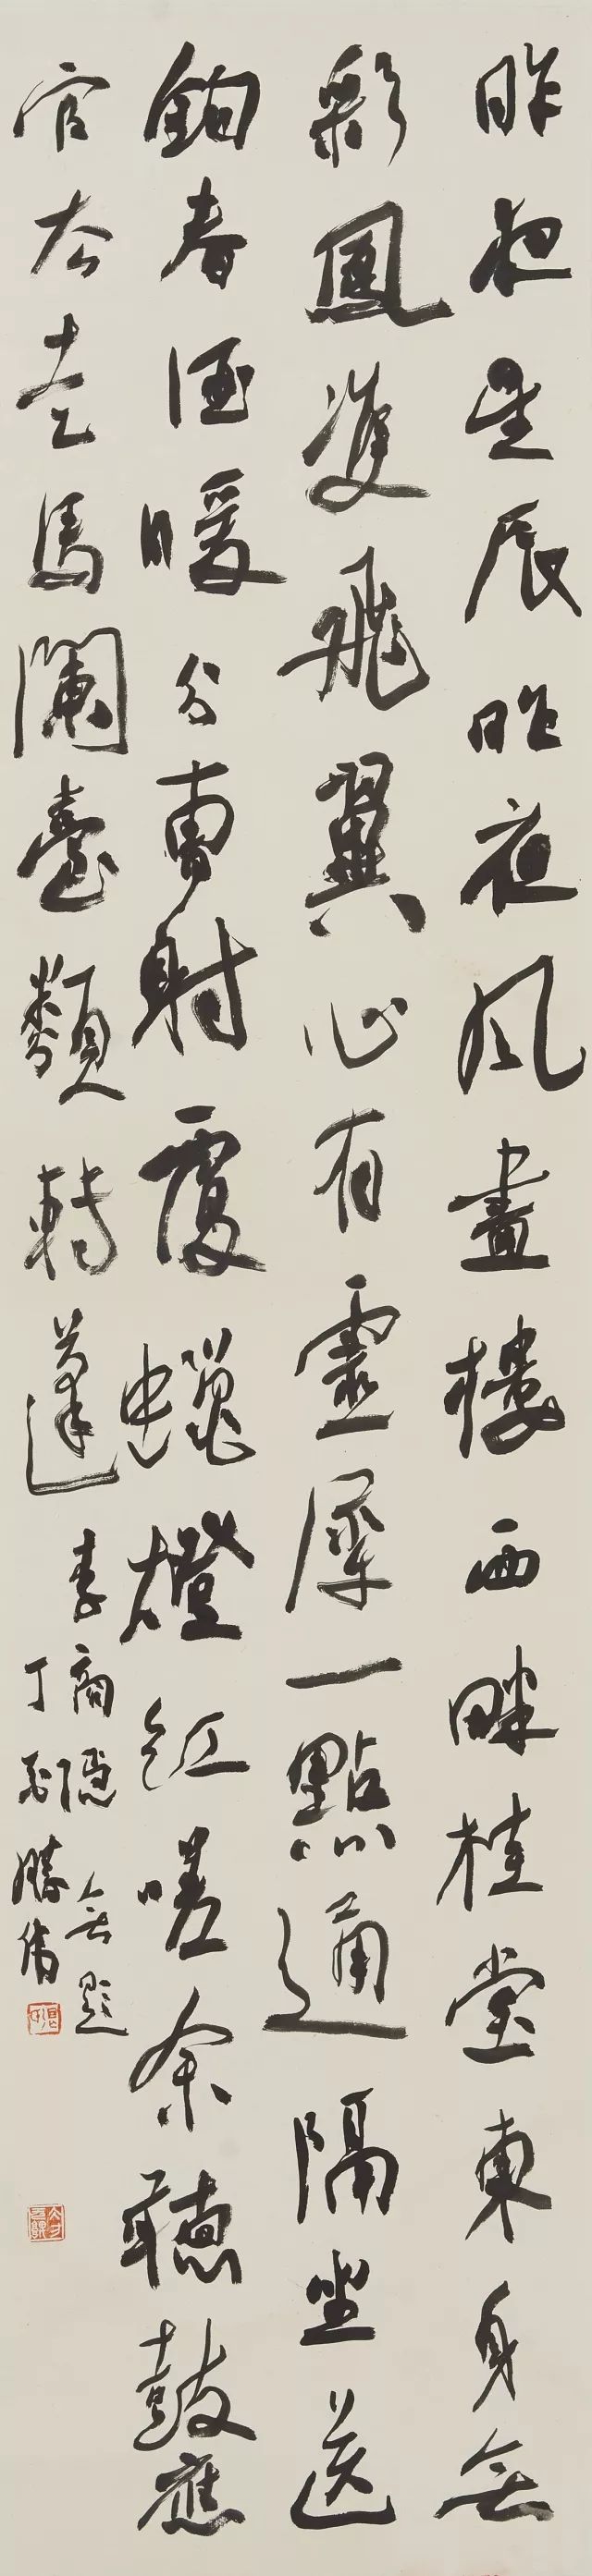 昨夜星辰昨夜风畫樓西畔桂堂東身無
彩鳳雙飛翼心有靈犀一點通隔坐送
鉤春酒暖分曹射覆蠟燈紅嗟余聽鼓應
官去走馬闌臺類轉蓬
李商隱無題
丁